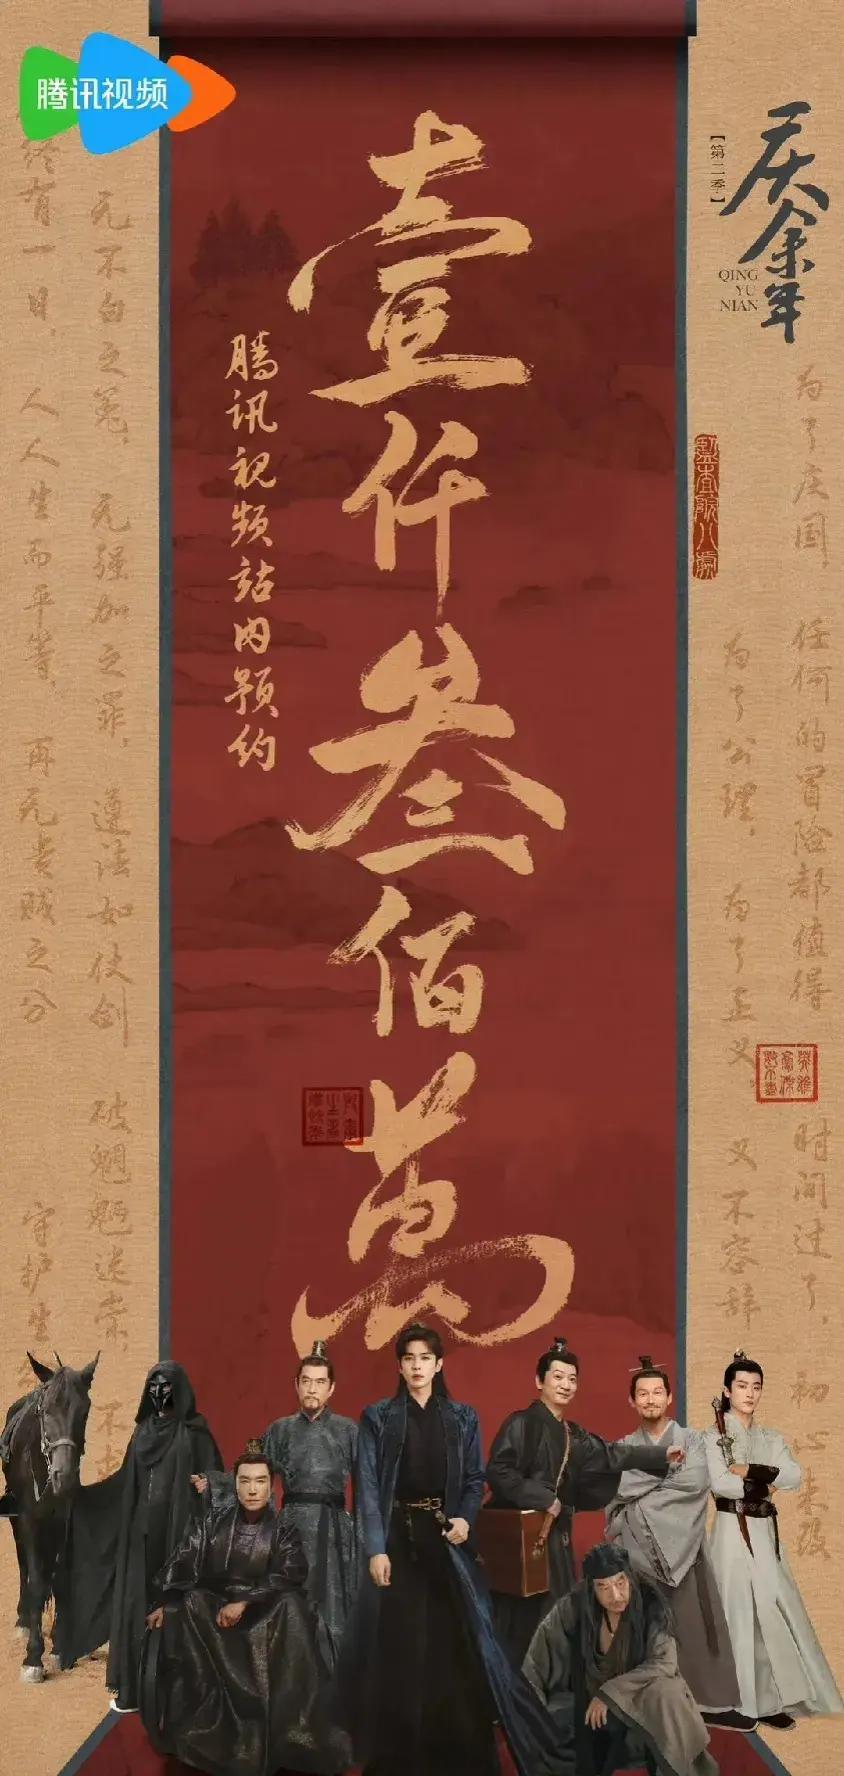 腾讯视频
庆余年
【第二季】
QING
YU
NIAN
壹仟叁佰萬
腾讯视频站内预约
监查院八处
为了庆国,任何的冒险都值得
时间过了,初心未改
为了公理,为了正义
义不容辞
无不白之冤,无强加之罪,遵法如仗剑
破魍魉迷祟,不求
终有一日,人人生而平等,再无贵贱之分
守护生